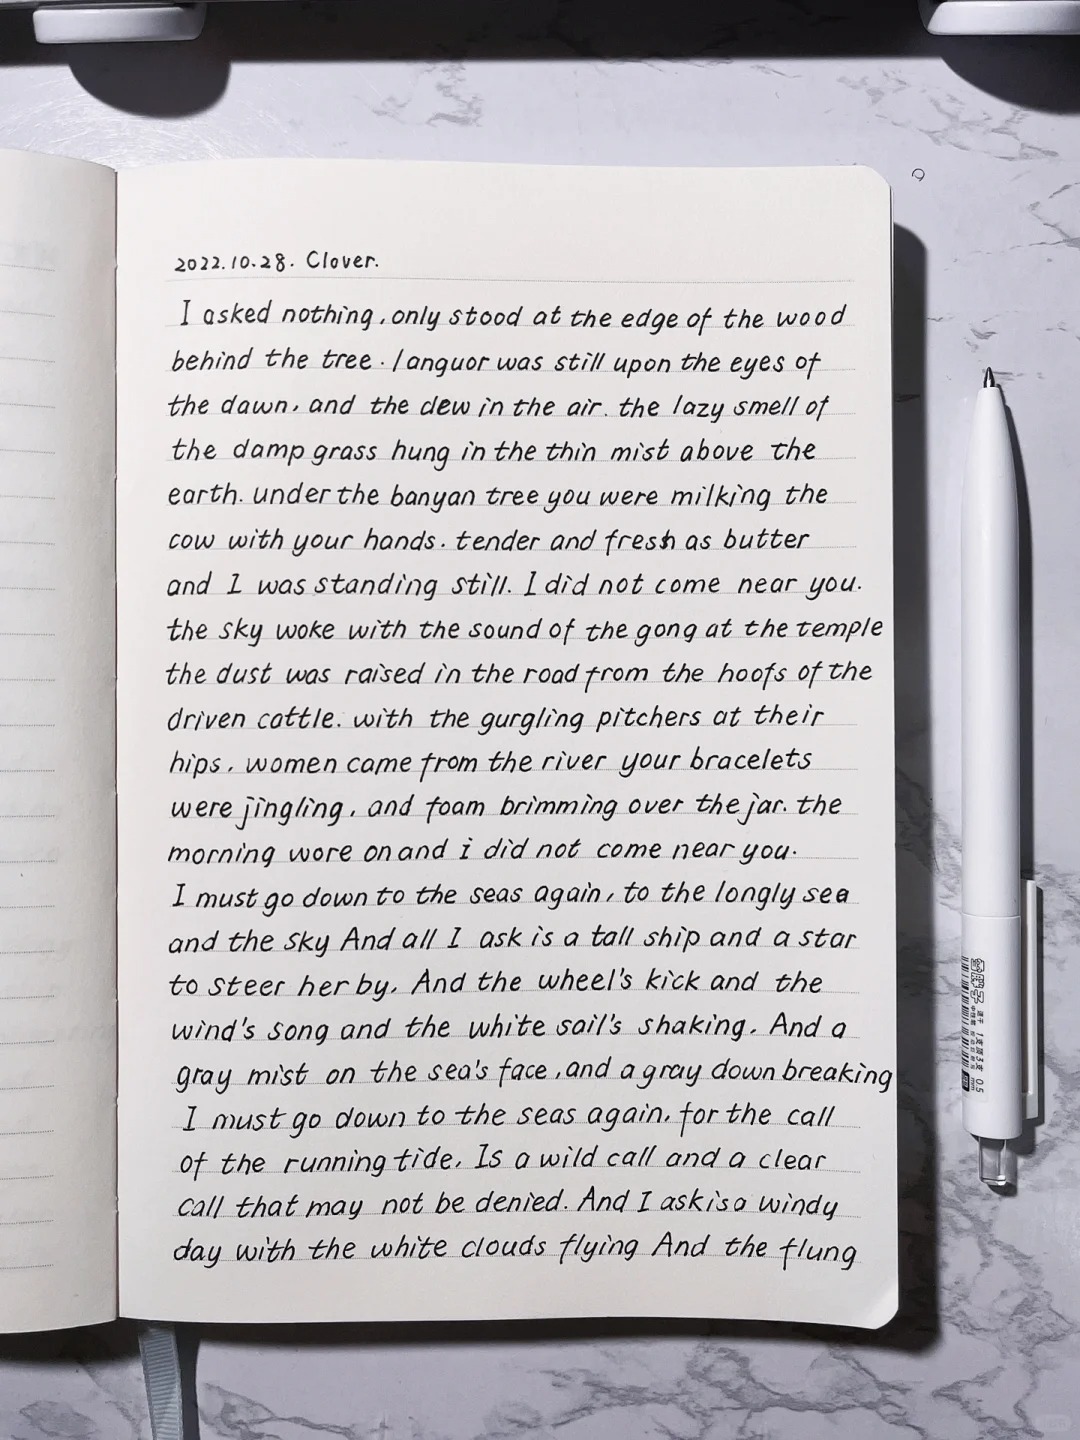 2022.10.28. Clover.
I asked nothing, only stood at the edge of the wood
behind the tree. languor was still upon the eyes of
the dawn, and the dew in the air. the lazy smell of
the damp grass hung in the thin mist above the
earth. under the banyan tree you were milking the
cow with your hands. tender and fresh as butter
and I was standing still. I did not come near you.
the sky woke with the sound of the gong at the temple
the dust was raised in the road from the hoofs of the
driven cattle. with the gurgling pitchers at their
hips, women came from the river your bracelets
were jingling, and foam brimming over the jar. the
morning wore on and i did not come near you.
I must go down to the seas again, to the longly sea
and the sky And all I ask is a tall ship and a star
to steer her by, And the wheel's kick and the
wind's song and the white sail's shaking, And a
gray mist on the sea's face, and a gray down breaking
I must go down to the seas again, for the call
of the running tide, Is a wild call and a clear
call that may not be denied. And I ask is a windy
day with the white clouds flying And the flung
0.5